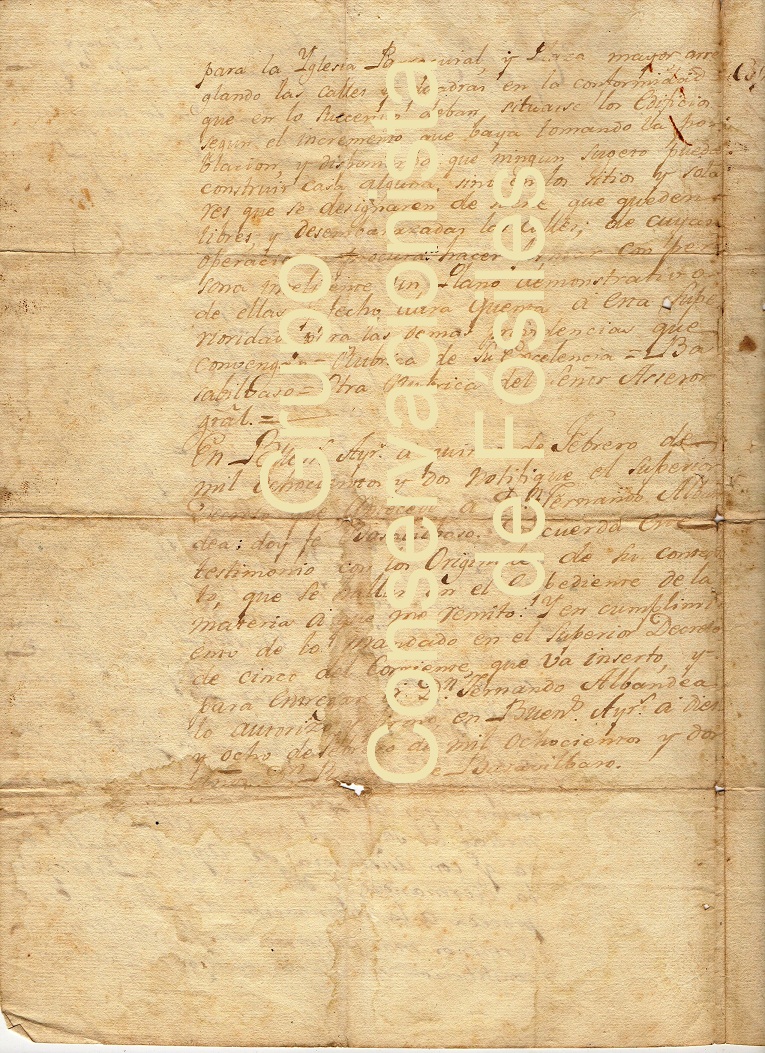 para la Yglesia Parroquial, y Plaza mayor arre
glando las calles y quadras en la conformidad
que en lo succesivo deban situarse los Edificios
segun el incremento que baya tomando la po
blacion, y disponiendo que ningun sugeto pueda
construir casa alguna, sino en los sitios y sola
res que se designaren de suerte que queden
libres, y desembarazadas las calles; de cuyas
operaciones procurará hacer formar con per
sona inteligente un Plano demonstrativo
de ellas fecho dará quenta á esta Supe
rioridad para las demas providencias que
convengan = Rubrica de Su Excelencia = Ba
sabilbaso = Otra Rubrica del Señor Assesor
gral. =
En Buens. Ayrs. a de Febrero de
mil ochocientos y dos notifiqué el Superior
Decreto que antecede á Dn. Fernando Alb
dea: doy fe Basavilbaso. Concuerda este
testimonio con los Originales de su contex
to, que se hallan en el Expediente de la
materia á que me remito. Y en cumplimi
ento de lo mandado en el Superior Decreto
de cinco del Corriente, que va inserto, y
para entregar á Dn. Fernando Albandea
lo autorizo y firmo en Buens. Ayrs. a dies
y ocho de Febrero de mil ochocientos y dos
Basavilbaso.
Grupo
Conservacionista
de Fósiles